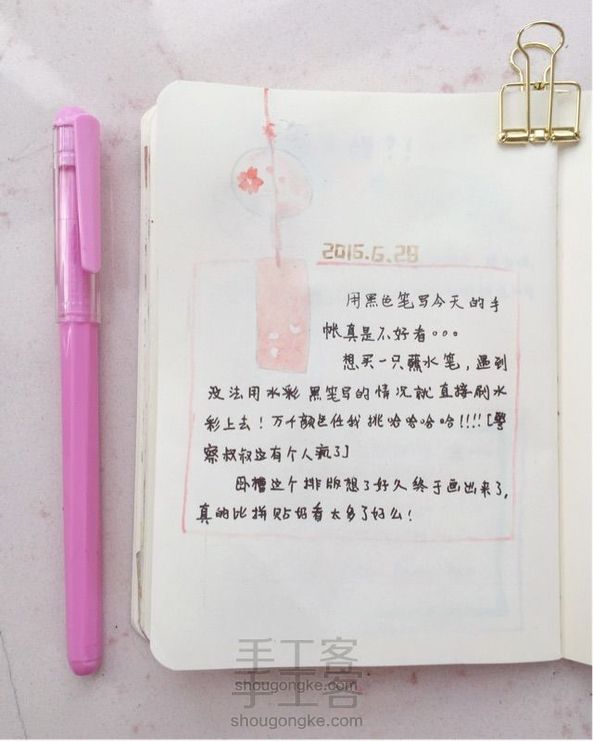 2016.6.28
用黑色笔写今天的手
帐真是不好看。。。
想买一只蘸水笔，遇到
没法用水彩黑笔写的情况就直接刷水
彩上去！万千颜色任我挑哈哈哈哈!!!!【警
察叔叔这有个人疯了】
卧槽这个排版想了好久终于画出来了，
真的比拼贴好看太多了好么！
手工客
shougongke.com
手工客
shougongke.com